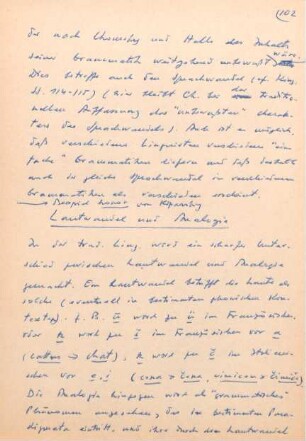 (102
die nach Chomsky und Halle den Inhalt
seiner Grammatik weitgehend unbewußt wäre.
Dies betreffe auch den Sprachwandel (cf. King
S. 114-115) (Hier bleibt Ch. bei der traditio-
nellen Auffassung des "unbewußten" Charak-
ters des Sprachwandels). Auch ist es möglich,
daß verschiedene Linguisten verschiedene "ein-
fache" Grammatiken liefern und daß deshalb
auch der gleiche Sprachwandel in verschiedenen
Grammatiken als verschieden erscheint.
→ Beispiel honor von Kiparsky
Lautwandel und Analogie
In der trad. Ling. wird ein scharfer Unter-
schied zwischen Lautwandel und Analogie
gemacht. Ein Lautwandel betrifft die Laute als
solche (eventuell in bestimmten phonischen Kon-
texten), z. B. u wird zu ü im Französischen,
oder k wird zu š im Französischen vor a
(cattus → chat), k wird zu č im Italieni-
schen vor e, i (cena > čena, vicinus > vičino).
Die Analogie hingegen wird als "grammatisches"
Phänomen angesehen, das in bestimmten Para-
digmata eintritt, und ihre durch den Lautwandel